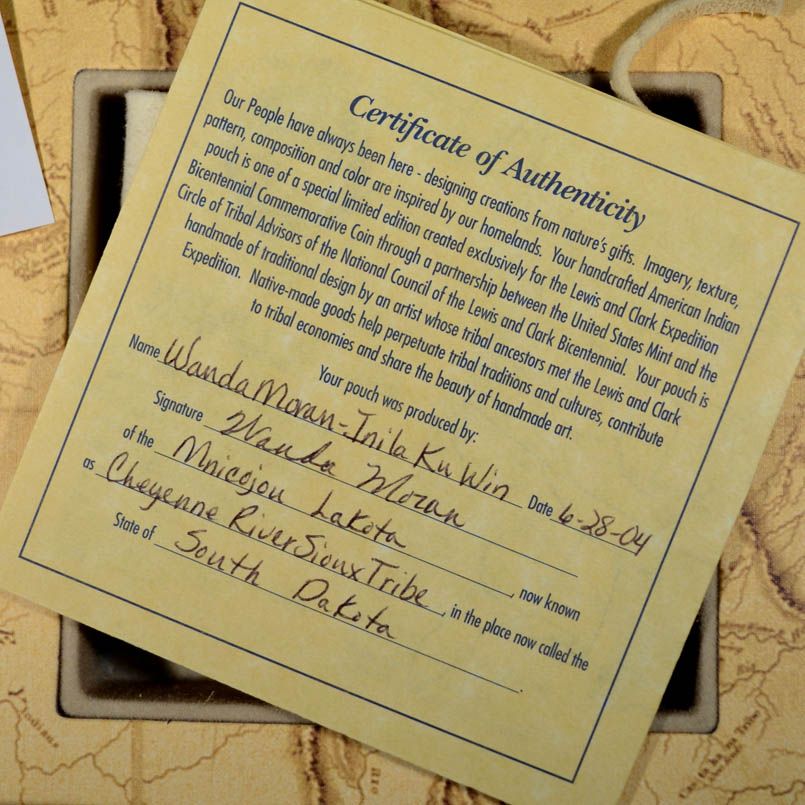 Certificate of Authenticity
Our People have always been here - designing creations from nature's gifts. Imagery, texture,
pattern, composition and color are inspired by our homelands. Your handcrafted American Indian
pouch is one of a special limited edition created exclusively for the Lewis and Clark Expedition
Bicentennial Commemorative Coin through a partnership between the United States Mint and the
Circle of Tribal Advisors of the National Council of the Lewis and Clark Bicentennial. Your pouch is
handmade of traditional design by an artist whose tribal ancestors met the Lewis and Clark
Expedition. Native-made goods help perpetuate tribal traditions and cultures, contribute
to tribal economies and share the beauty of handmade art.
Your pouch was produced by:
Name Wanda Moran-Inila Ku Win Date 6-28-04
Signature Wanda Moran
of the Mnicojou Lakota , now known
as Cheyenne River Sioux Tribe , in the place now called the
State of South Dakota .